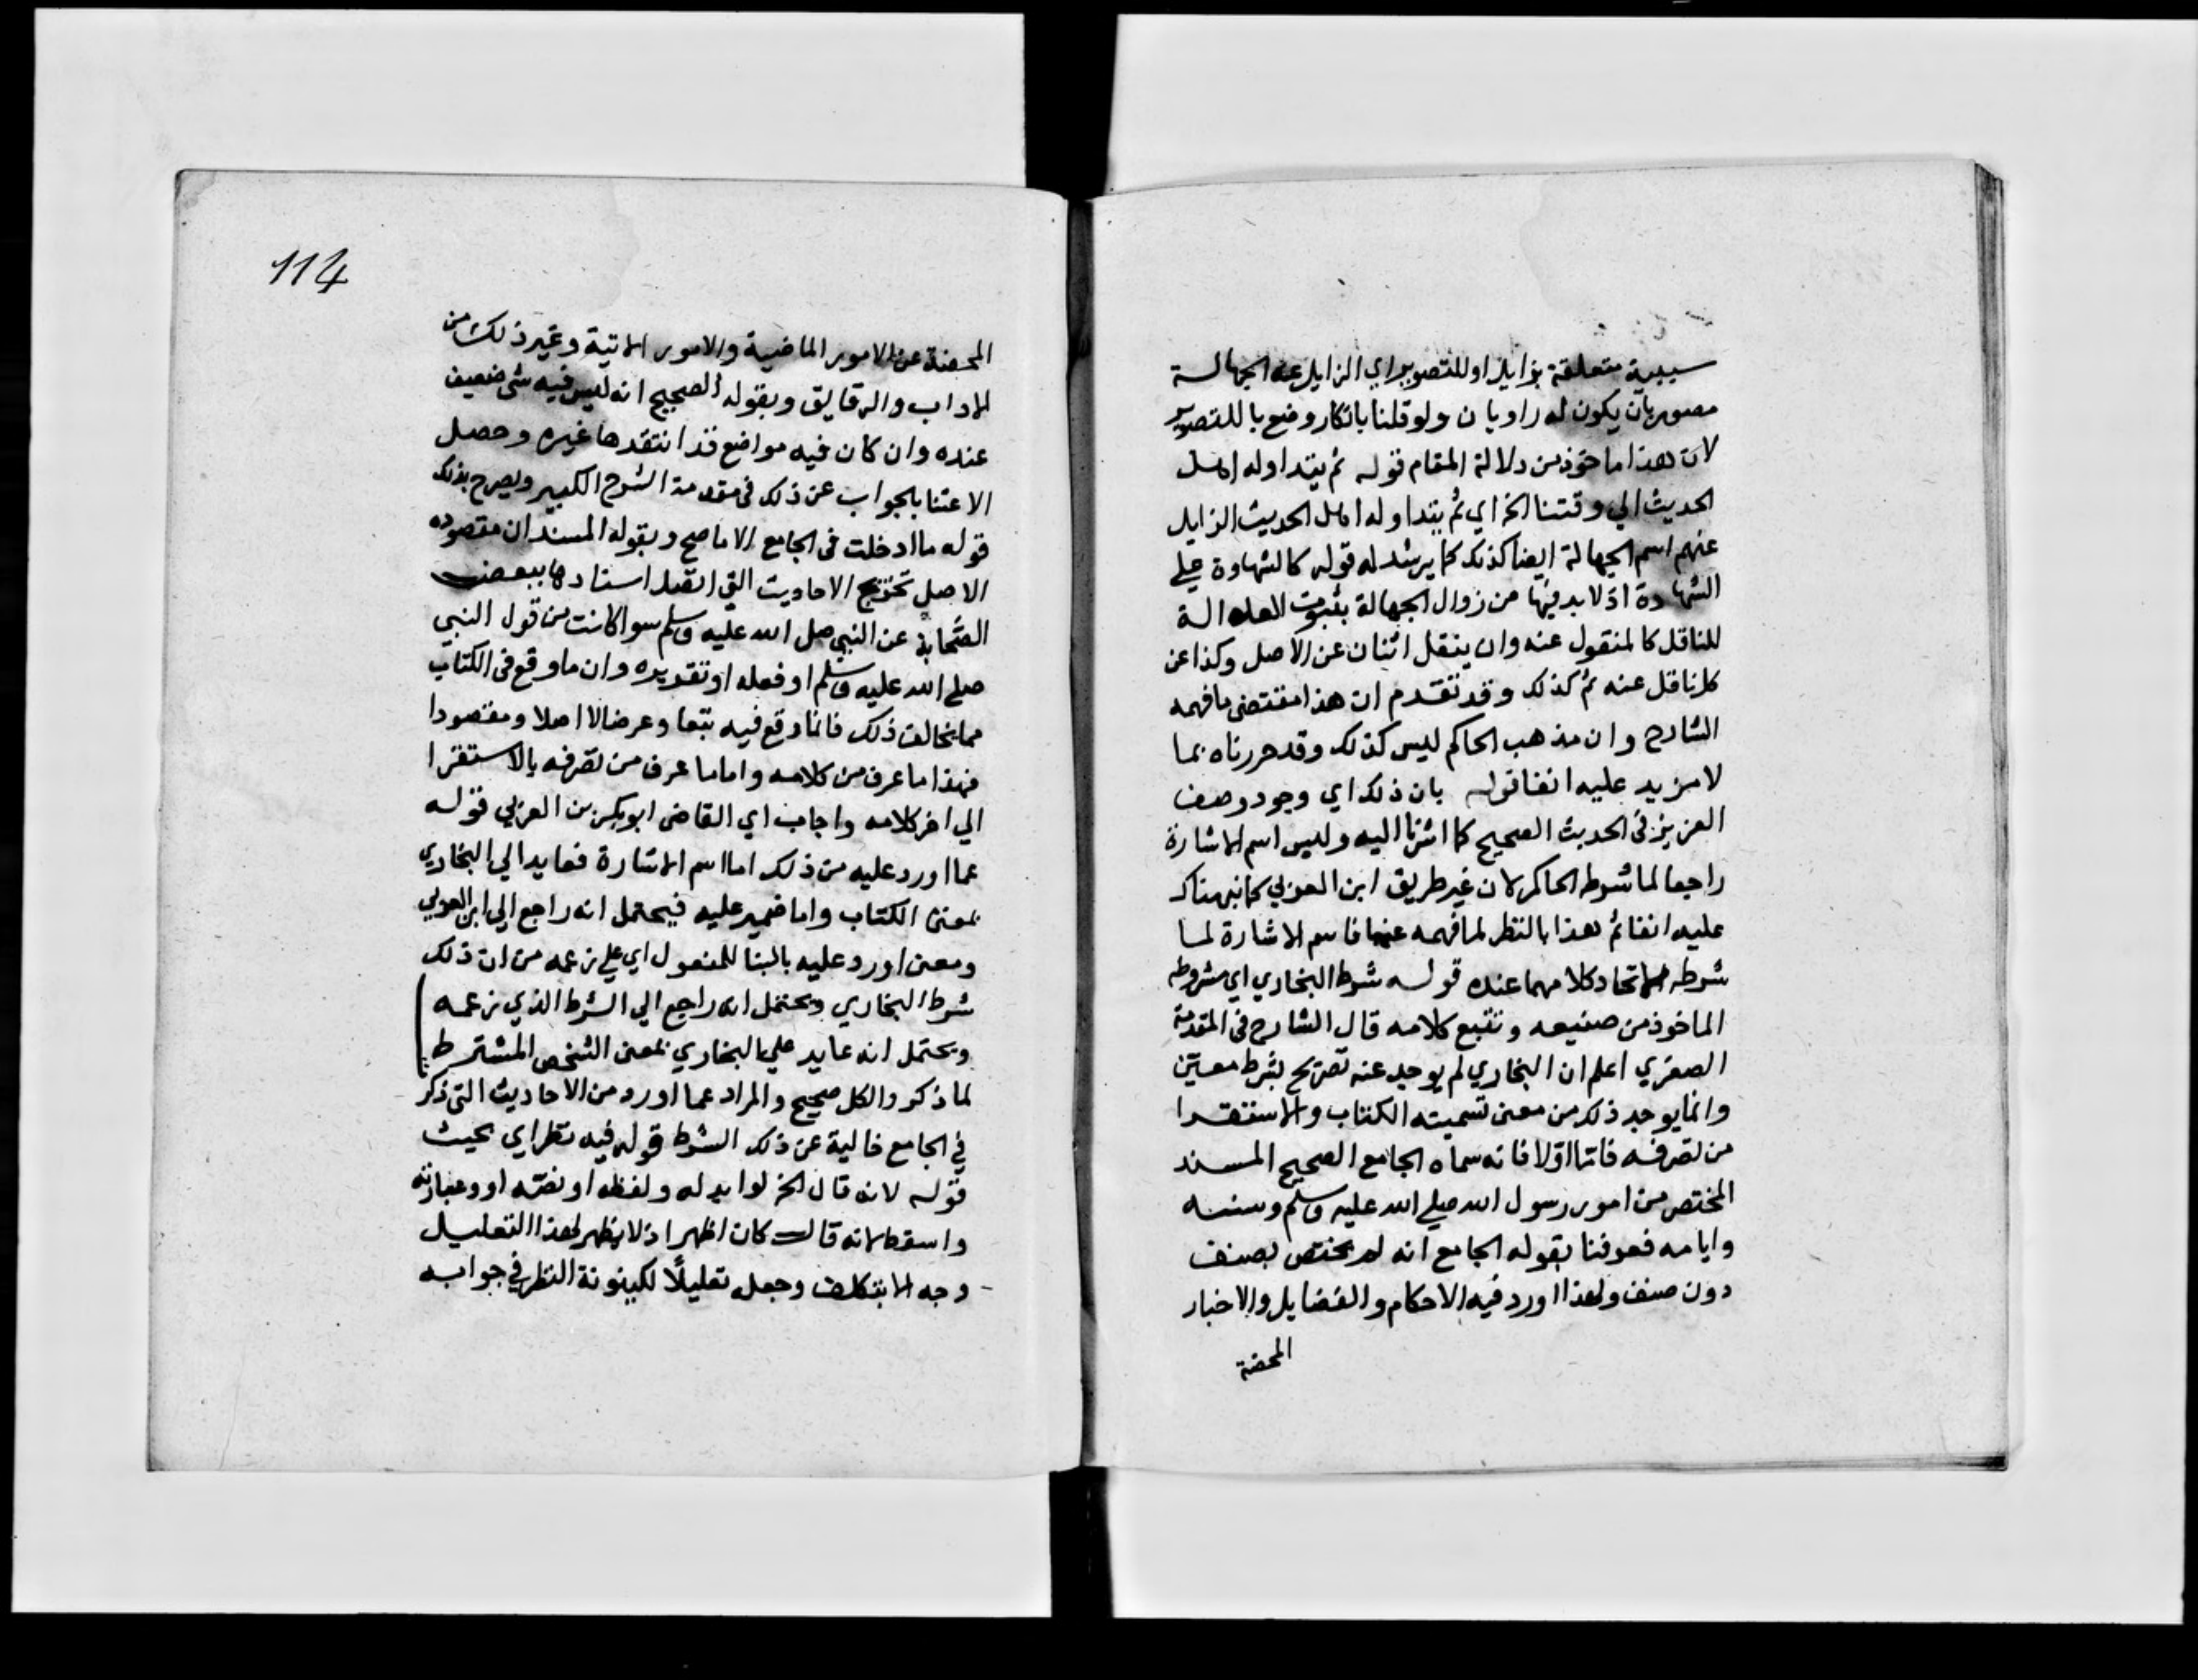 سببية متعلقة بزايل او للتصوير اي الزايل عنه الجهالة
مصور بان يكون له راويان ولو قلنا بانكار وضع با للتصوير
لان هذا ماخوذ من دلالة المقام قوله ثم يتداوله اهل
الحديث الي وقتنا الخ اي ثم يتداوله اهل الحديث الزايل
عنهم اسم الجهالة ايضا كذلك كما يرشد له قوله كالشهادة علي
الشهادة اذ لا بد فيها من زوال الجهالة بثبوت العدالة
للناقل كالمنقول عنه وان ينقل اثنان عن الاصل وكذا عن
كل ناقل عنه ثم كذلك وقد تقدم ان هذا مقتضى ما فهمه
الشارح وان مذهب الحاكم ليس كذلك وقد حررناه بما
لا مزيد عليه انفا قوله بان ذلك اي وجود وصف
العزيز في الحديث الصحيح كما اشرنا اليه وليس اسم الاشارة
راجعا لما شرطه الحاكم لان غير طريق ابن العربي كما نبهناك
عليه انفا ثم هذا بالنظر لما فهمه عنهما فاسم الاشارة لما
شرطه لاتحاد كلامهما عنده قوله شرط البخاري اي مشروطه
الماخوذ من صنيعه وتتبع كلامه قال الشارح في المقدمة
الصغري اعلم ان البخاري لم يوجد عنه تصريح بشرط معين
وانما يوجد ذلك من معنى تسميته الكتاب والاستقرا
من تصرفه فاما اولا فانه سماه الجامع الصحيح المسند
المختصر من امور رسول الله صلي الله عليه وسلم وسننه
وايامه فعرفنا بقوله الجامع انه لم يختص بصنف
دون صنف ولهذا اورد فيه الاحكام والفضايل والاخبار
المحضة
114
المحضة عن الامور الماضية والامور الاتية وغير ذلك من
الاداب والرقايق وبقوله الصحيح انه ليس فيه شئ ضعيف
عنده وان كان فيه مواضع قد انتقدها غيره وحصل
الاعتنا بالجواب عن ذلك في مقدمة الشرح الكبير ويصرح بذلك
قوله ما ادخلت في الجامع الا ما صح وبقوله المسند ان مقصوده
الاصل تخريج الاحاديث التي اتصل اسنادها ببعض
الصحابة عن النبي صلى الله عليه وسلم سوا كانت من قول النبي
صلي الله عليه وسلم او فعله او تقريره وان ما وقع في الكتاب
مما يخالف ذلك فانما وقع فيه تبعا وعرضا لا اصلا ومقصودا
فهذا ما عرف من كلامه واما ما عرف من تصرفه بالاستقرا
الي اخر كلامه واجاب اي القاضي ابو بكر بن العربي قوله
عما اورد عليه من ذلك اما اسم الاشارة فعايد الي البخاري
بمعنى الكتاب واما ضمير عليه فيحتمل انه راجع الي ابن العربي
ومعنى اورد عليه بالبنا للمفعول اي علي زعمه من ان ذلك
شرط البخاري ويحتمل انه راجع الي الشرط الذي زعمه
ويحتمل انه عايد علي البخاري بمعنى الشخص المشترط
لما ذكر والكل صحيح والمراد عما اورد من الاحاديث التي ذكر
في الجامع خالية عن ذلك الشرط قوله فيه نظر اي بحيث
قوله لانه قال الخ لو ابدله ولفظه او نصه او وعبارته
واسقط لانه قال كان اظهر اذ لا يظهر لهذا التعليل
وجه الا بتكلف وجعل تعليلا لكينونة النظر في جوابه